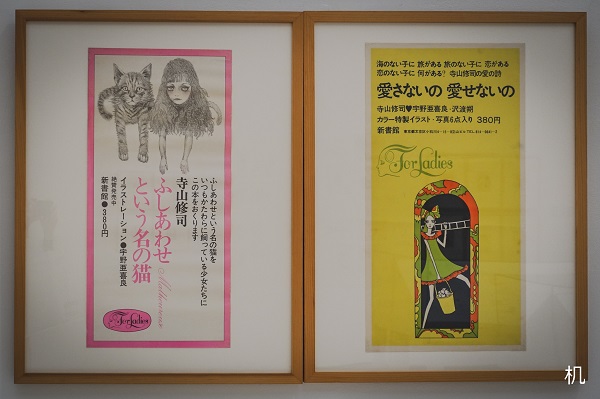 ふしあわせという名の猫を
いつもかたわらに飼っている少女たちに
この本をおくります
寺山修司
ふしあわせ
という名の猫
イラストレーション●宇野亜喜良
絶賛発売中
新書館●380円
ForLadies
海のない子に 旅がある 旅のない子に 恋がある
恋のない子に 何がある? 寺山修司の愛の詩
愛さないの 愛せないの
寺山修司♥宇野亜喜良・沢渡朔
カラー特製イラスト・写真6点入り 380円
新書館
ForLadies
机